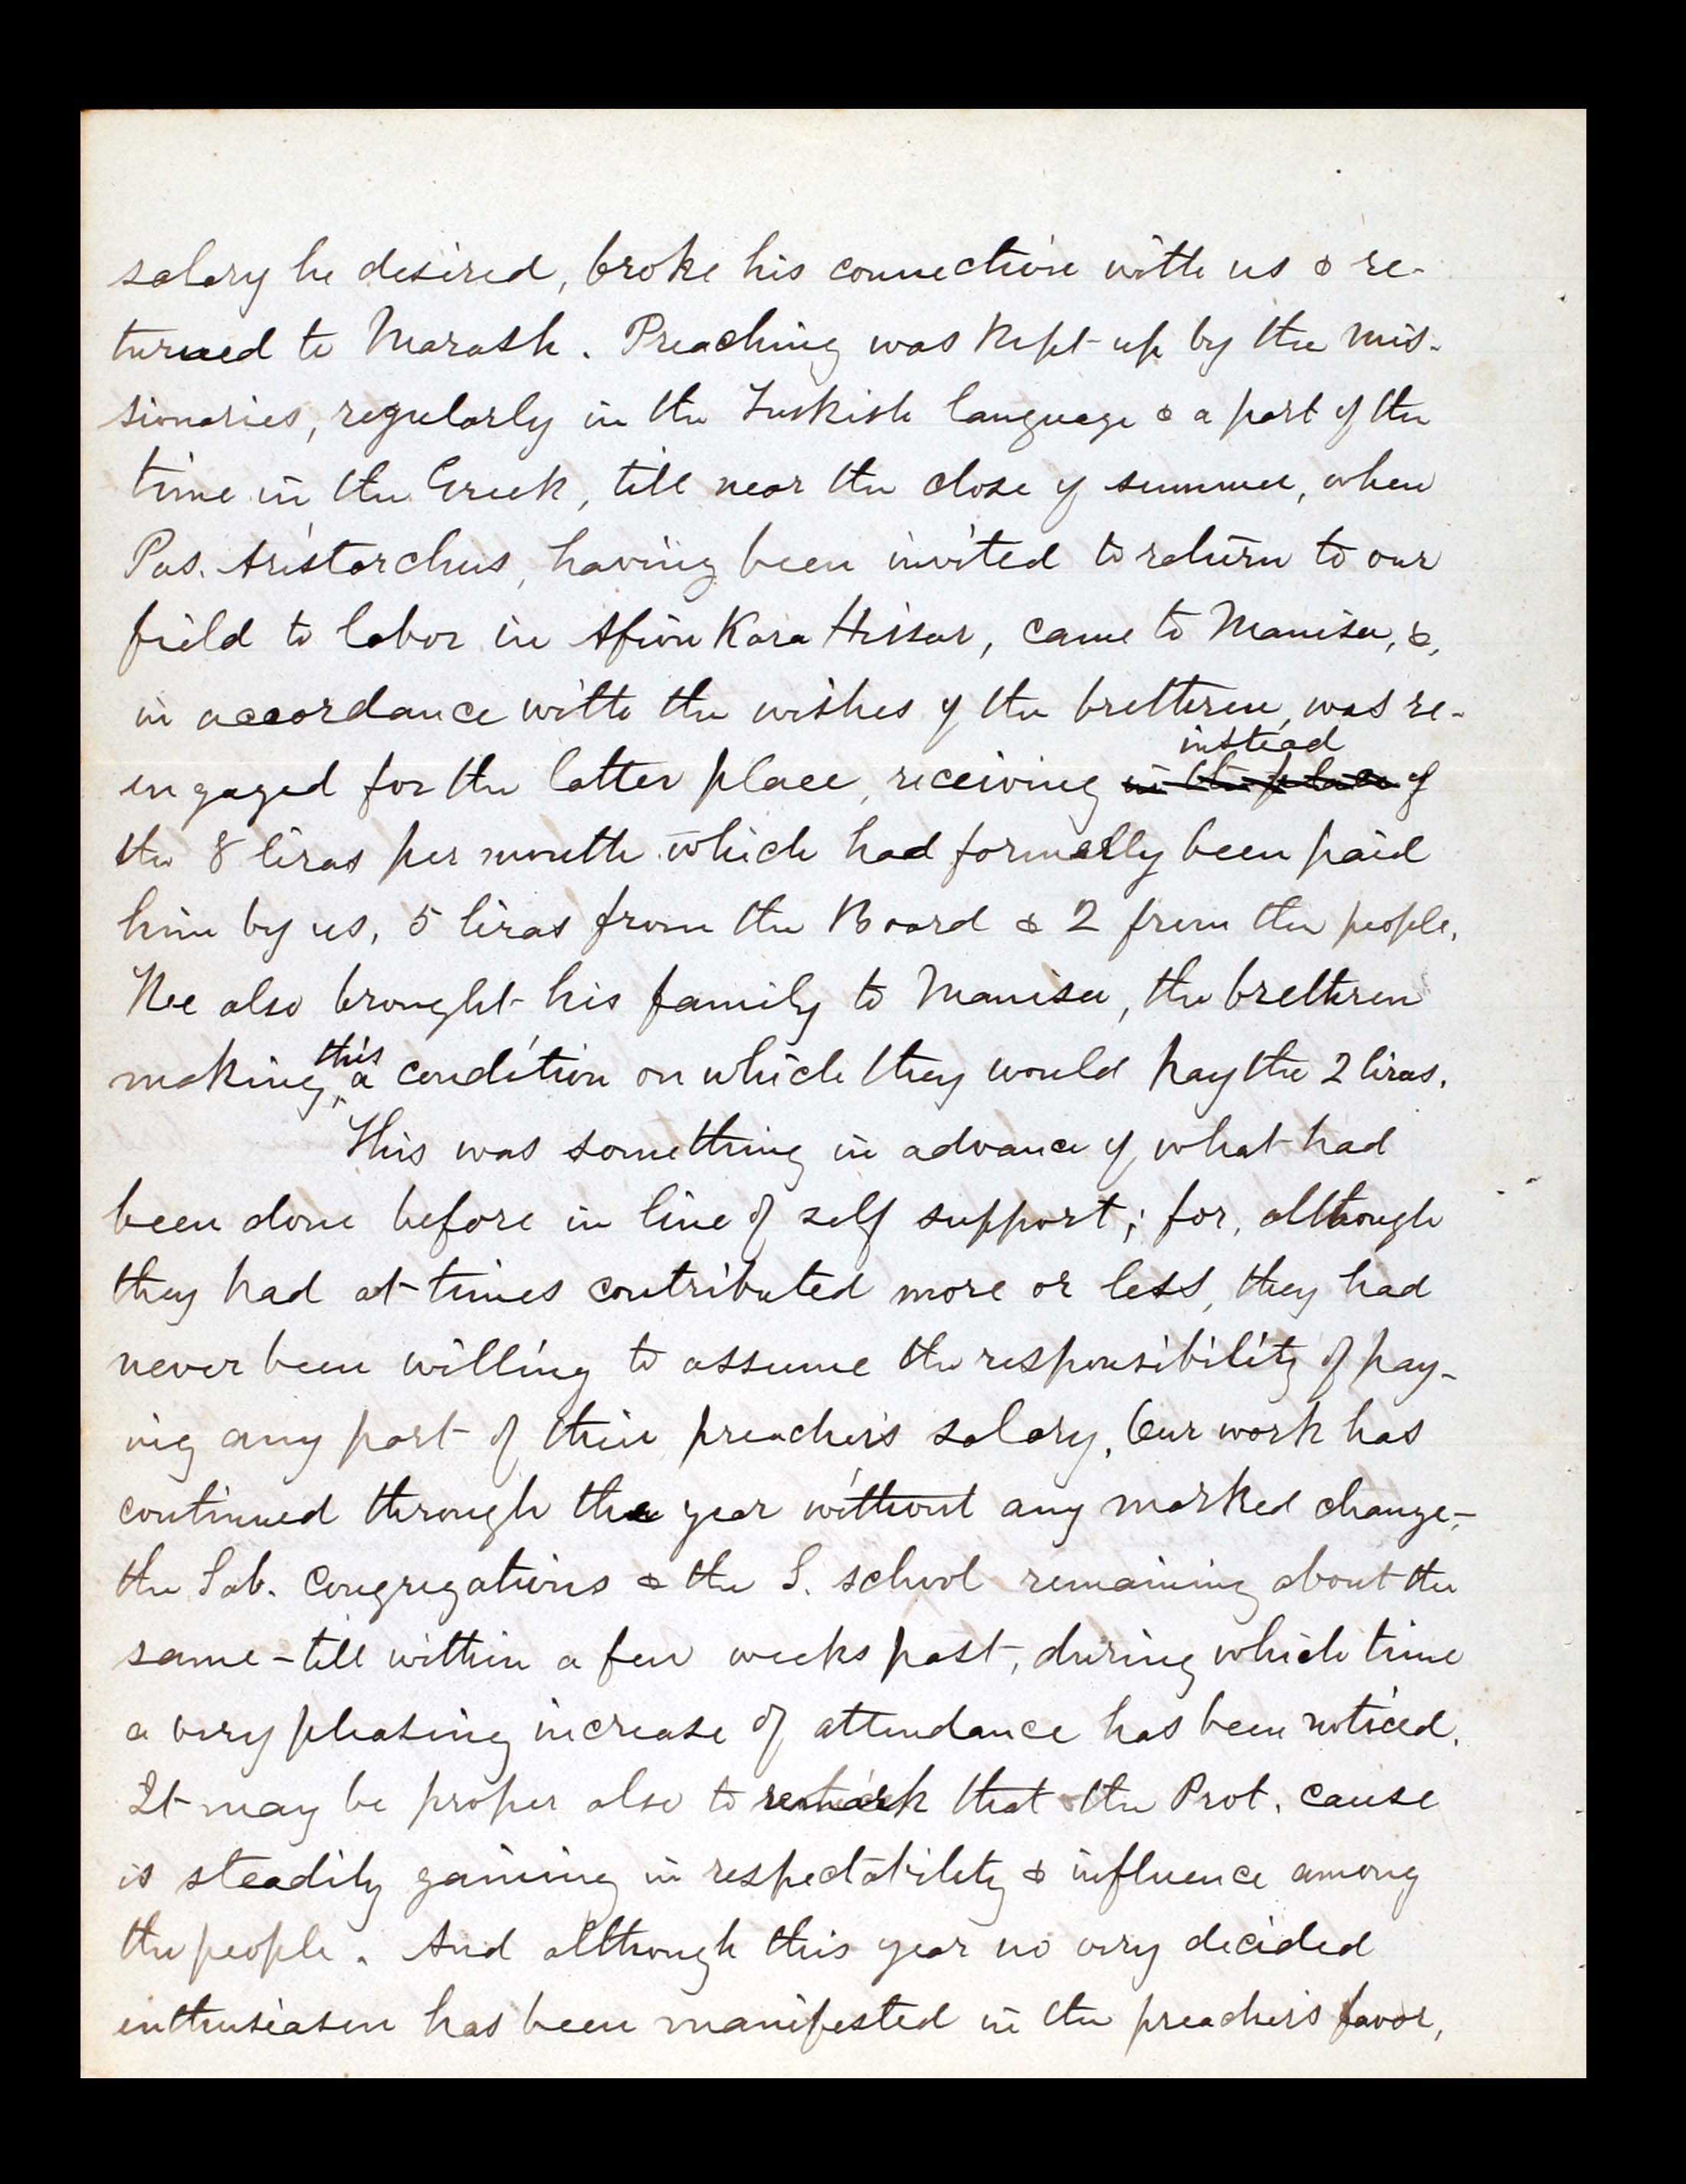 salary he desired, broke his connection with us & re-
turned to Marash. Preaching was kept up by the mis-
sionaries, regularly in the Turkish language & a part of the
time in the Greek, till near the close of summer, when
Pas. Aristarchus, having been invited to return to our
field to labor in Afion Kara Hissar, came to Manisa, &,
in accordance with the wishes of the brethren, was re-
instead
engaged for the latter place, receiving in the place of
the 8 liras per month which had formerly been paid
him by us, 5 liras from the Board & 2 from the people.
He also brought his family to Manisa, the brethren
this
making a condition on which they would pay the 2 liras.
This was something in advance of what had
been done before in line of self support; for, although
they had at times contributed more or less, they had
never been willing to assume the responsibility of pay-
ing any part of their preacher's salary. Our work has
continued through the year without any marked change-
the Sab. congregations & the S. school remaining about the
same - till within a few weeks past, during which time
a very pleasing increase of attendance has been noticed.
It may be proper also to remark that the Prot. cause
is steadily gaining in respectability & influence among
the people. And although this year no very decided
enthusiasm has been manifested in the preacher's favor,